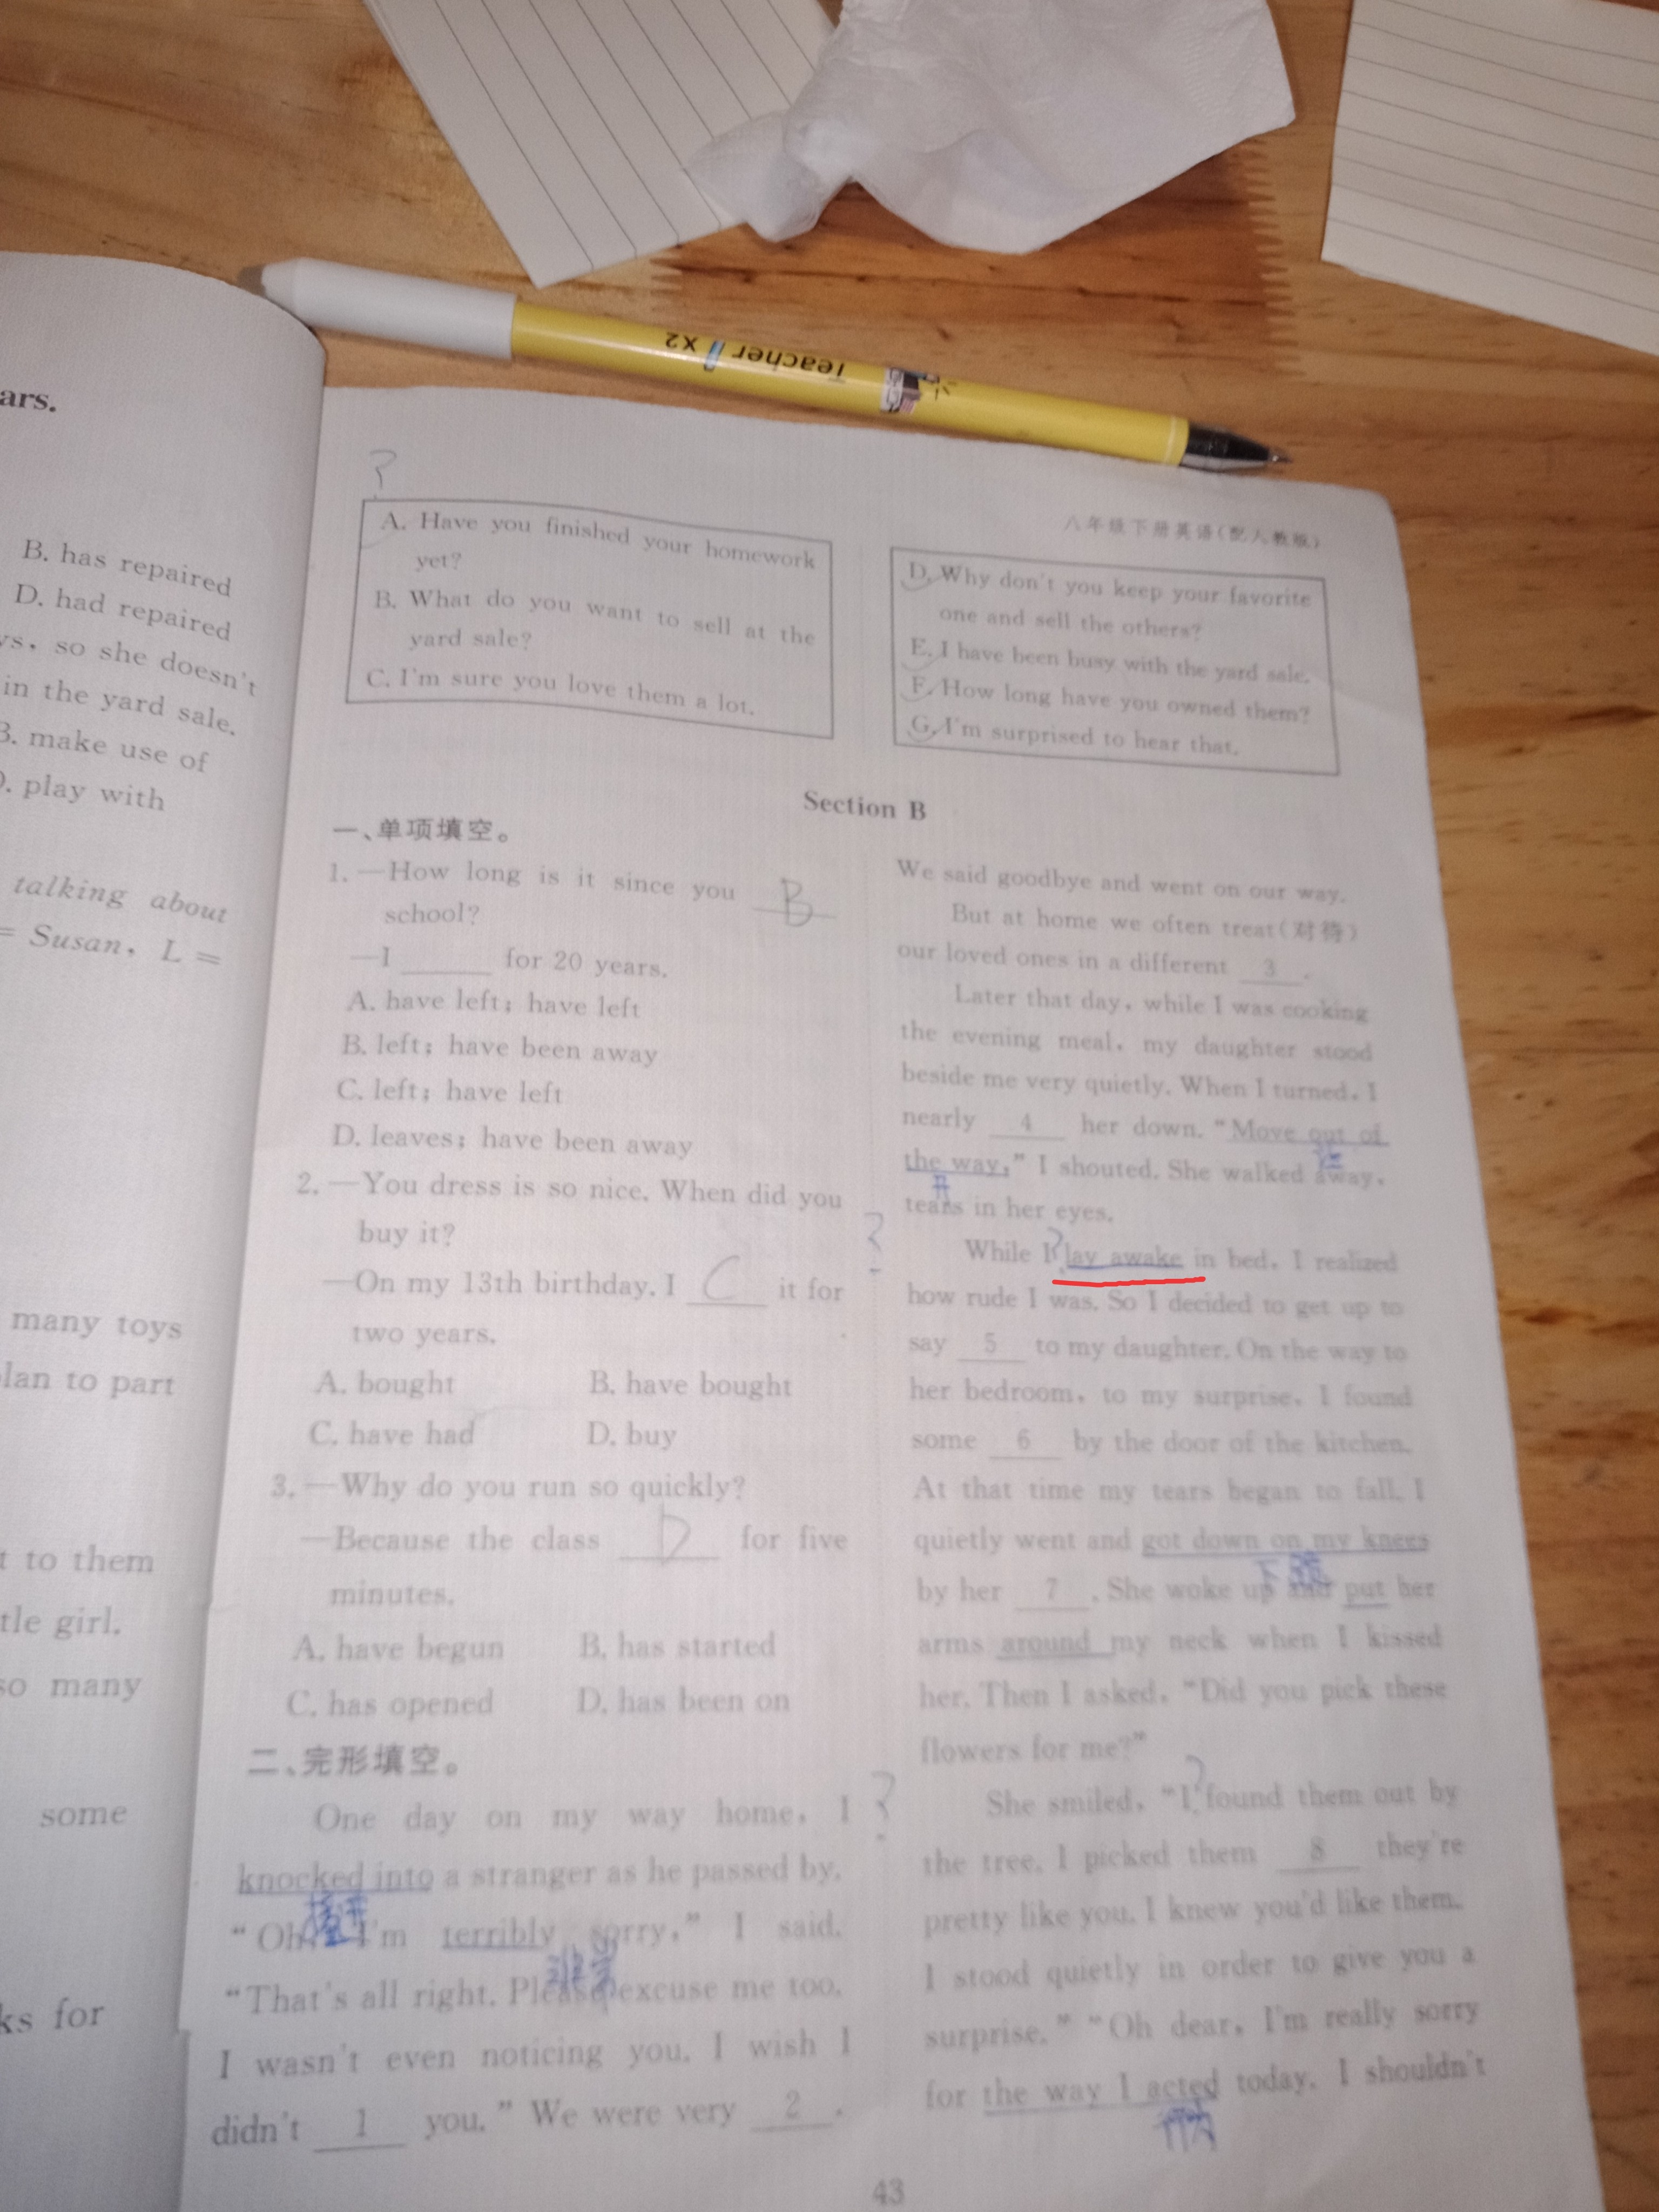 Teacher x2
ars.
B. has repaired
D. had repaired
ys, so she doesn't
in the yard sale.
B. make use of
D. play with
talking about
= Susan, L =
many toys
plan to part
t to them
tle girl.
so many
some
ks for
?
A. Have you finished your homework
yet?
B. What do you want to sell at the
yard sale?
C. I'm sure you love them a lot.
八年级下册英语(配人教版)
D. Why don't you keep your favorite
one and sell the others?
E. I have been busy with the yard sale.
F. How long have you owned them?
G. I'm surprised to hear that.
Section B
一、单项填空。
1. —How long is it since you B
school?
—I ____ for 20 years.
A. have left; have left
B. left; have been away
C. left; have left
D. leaves; have been away
2. —You dress is so nice. When did you
buy it?
—On my 13th birthday. I C it for
two years.
A. bought B. have bought
C. have had D. buy
3. —Why do you run so quickly?
—Because the class D for five
minutes.
A. have begun B. has started
C. has opened D. has been on
二、完形填空。
One day on my way home, I ?
knocked into a stranger as he passed by.
“Oh, I'm terribly sorry,” I said.
非常
“That's all right. Please excuse me too.
I wasn't even noticing you. I wish I
didn't 1 you.” We were very 2 .
We said goodbye and went on our way.
But at home we often treat(对待)
our loved ones in a different 3 .
Later that day, while I was cooking
the evening meal, my daughter stood
beside me very quietly. When I turned, I
nearly 4 her down. “Move out of
the way,” I shouted. She walked away,
开
tears in her eyes.
?
While I ? lay awake in bed, I realized
how rude I was. So I decided to get up to
say 5 to my daughter. On the way to
her bedroom, to my surprise, I found
some 6 by the door of the kitchen.
At that time my tears began to fall. I
quietly went and got down on my knees
下跪
by her 7 . She woke up and put her
arms around my neck when I kissed
her. Then I asked, “Did you pick these
flowers for me?”
?
She smiled, “I found them out by
the tree. I picked them 8 they're
pretty like you. I knew you'd like them.
I stood quietly in order to give you a
surprise.” “Oh dear, I'm really sorry
for the way I acted today. I shouldn't
行为
43